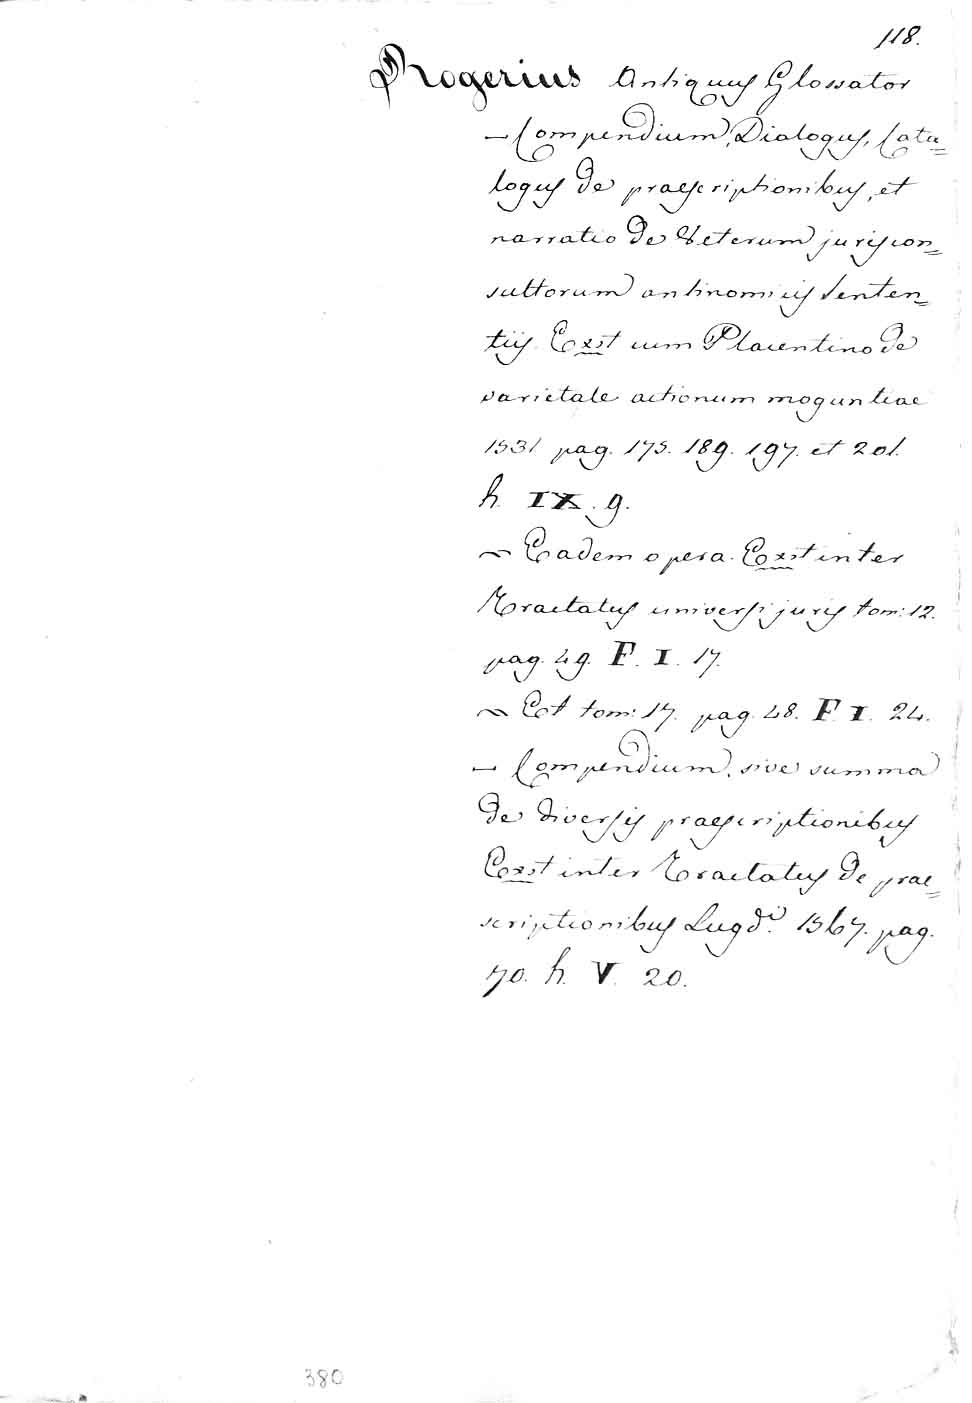 118.
Rogerius Antiquus Glossator
— Compendium, Dialogus, Cata=
logus de praescriptionibus, et
narratio de Veterum juriscon=
sultorum antinomicis senten=
tiis. Exst cum Placentino de
varietate actionum moguntiae
1531 pag. 175. 189. 197. et 201.
h. IX. 9.
~ Eadem opera. Exst inter
Tractatus universi juris tom: 12.
pag. 49. F. I. 17.
~ Et tom: 17. pag. 48. F. I. 24.
— Compendium, sive summa
de diversis praescriptionibus
Exst inter Tractatus de prae=
scriptionibus Lugdi. 1567. pag.
70. h. V. 20.
380